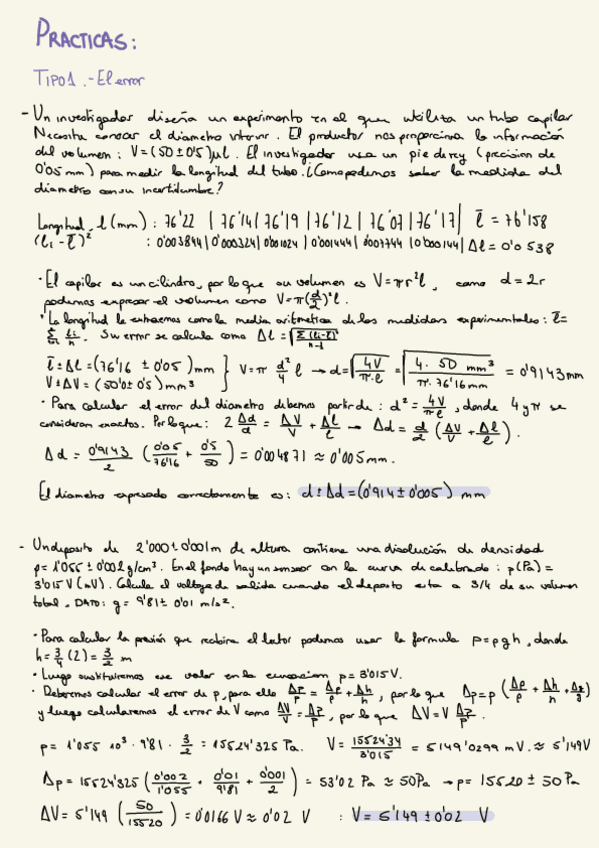 PRACTICAS:
TIPO 1.- El error
- Un investigador diseña un experimento en el que utiliza un tubo capilar
Necesita conocer el diametro interior. El productor nos proporciona la información
del volumen: V=(50±0'5)μl. El investigador usa un pie de rey (precision de
0'05 mm) para medir la longitud del tubo. ¿Como podemos saber la medida del
diametro con su incertidumbre?
Longitud, l (mm): 76'22 | 76'14 | 76'19 | 76'12 | 76'07 | 76'17 | l̄ = 76'158
(lᵢ-l̄)² : 0'003844 | 0'000324 | 0'001024 | 0'001444 | 0'007744 | 0'000144 | Δl = 0'0538
· El capilar es un cilindro, por lo que su volumen es V=πr²l, como d=2r
podemos expresar el volumen como V=π(d/2)²l.
· La longitud la extraemos como la media aritmetica de las medidas experimentales: l̄=
Σ lᵢ/n. Su error se calcula como Δl=√(Σ(lᵢ-l̄)²/n-1)
l̄±Δl=(76'16 ± 0'05) mm } V=π d²/4 l → d=√(4V/π·l) = √(4·50 mm³/π·76'16mm) = 0'9143mm
V±ΔV = (50'0±0'5) mm³
· Para calcular el error del diametro debemos partir de: d²=4V/πl, donde 4 y π se
consideran exactos. Por lo que: 2 Δd/d = ΔV/V + Δl/l → Δd= d/2 (ΔV/V + Δl/l).
Δd = 0'9143/2 (0'05/76'16 + 0'5/50) = 0'004871 ≈ 0'005mm.
El diametro expresado correctamente es: d±Δd=(0'914±0'005) mm
- Un deposito de 2'000±0'001m de altura contiene una disolución de densidad
ρ=1'055±0'002g/cm³. En el fondo hay un sensor con la curva de calibrado: p(Pa)=
3'015V(mV). Calcula el voltaje de salida cuando el deposito esta a 3/4 de su volumen
total. DATO: g=9'81±0'01 m/s².
· Para calcular la presión que recibira el lector podemos usar la formula p=ρgh, donde
h=3/4(2)=3/2 m
· Luego sustituiremos ese valor en la ecuacion p=3'015V.
· Deberemos calcular el error de p, para ello Δp/p = Δρ/ρ + Δh/h, por lo que Δp=p(Δρ/ρ + Δh/h + Δg/g)
y luego calcularemos el error de V como ΔV/V = Δp/p, por lo que ΔV=V Δp/p.
p=1'055 10³·9'81·3/2 = 15524'325 Pa. V=15524'34/3'015 = 5149'0299 mV.≈5'149V
Δp=15524'325(0'002/1'055 + 0'01/9'81 + 0'001/2) = 53'02 Pa ≈ 50Pa → p= 15520 ± 50Pa
ΔV=5'149 (50/15520) = 0'0166 V ≈ 0'02 V : V=5'149±0'02 V